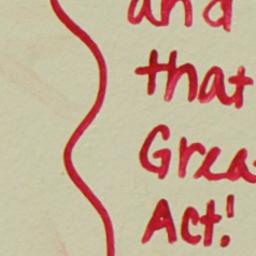 and
that
Grea
Act!